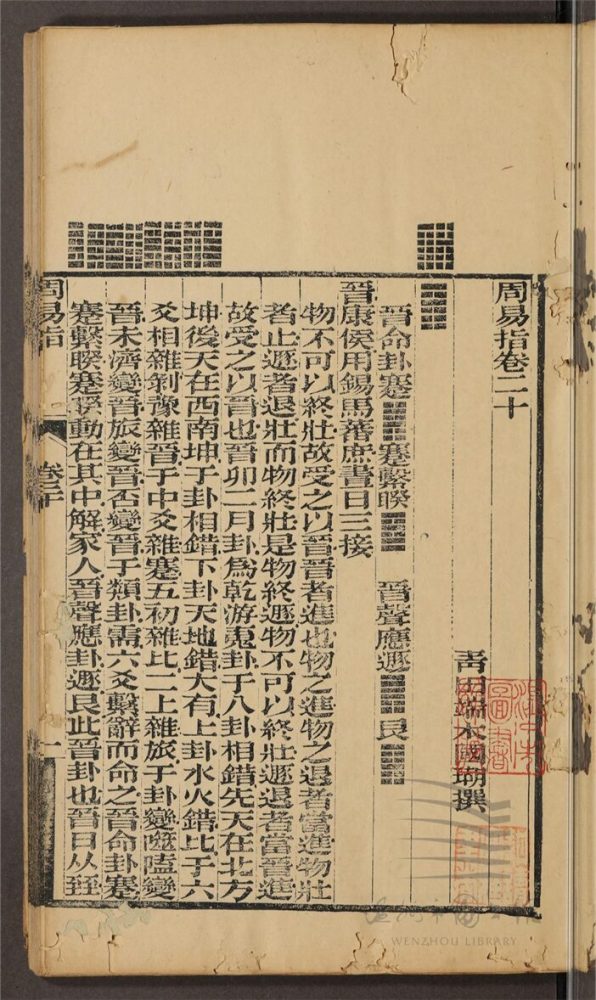 周易指卷二十
青田端木國瑚撰
晉命卦蹇 蹇繫睽 晉聲應遯 艮
晉康侯用錫馬蕃庶晝日三接
物不可以終壯故受之以晉晉者進也物之進物之退者當進物壯
者止遯者退壯而物終壯是物終遯物不可以終壯遯退者當晉進
故受之以晉也晉卯二月卦為乾游䰟卦于八卦相錯先天在北方
坤後天在西南坤于卦相錯下卦天地錯大有上卦水火錯比于六
爻相雜剝豫雜晉于中爻雜蹇五初雜比二上雜旅于卦變噬嗑變
晉未濟變晉旅變晉否變晉于類卦需六爻繫辭而命之晉命卦蹇
蹇繫睽蹇睽動在其中解家人晉聲應卦遯艮此晉卦也晉日从臸
周易指
卷二十
一
WENZHOU LIBRARY